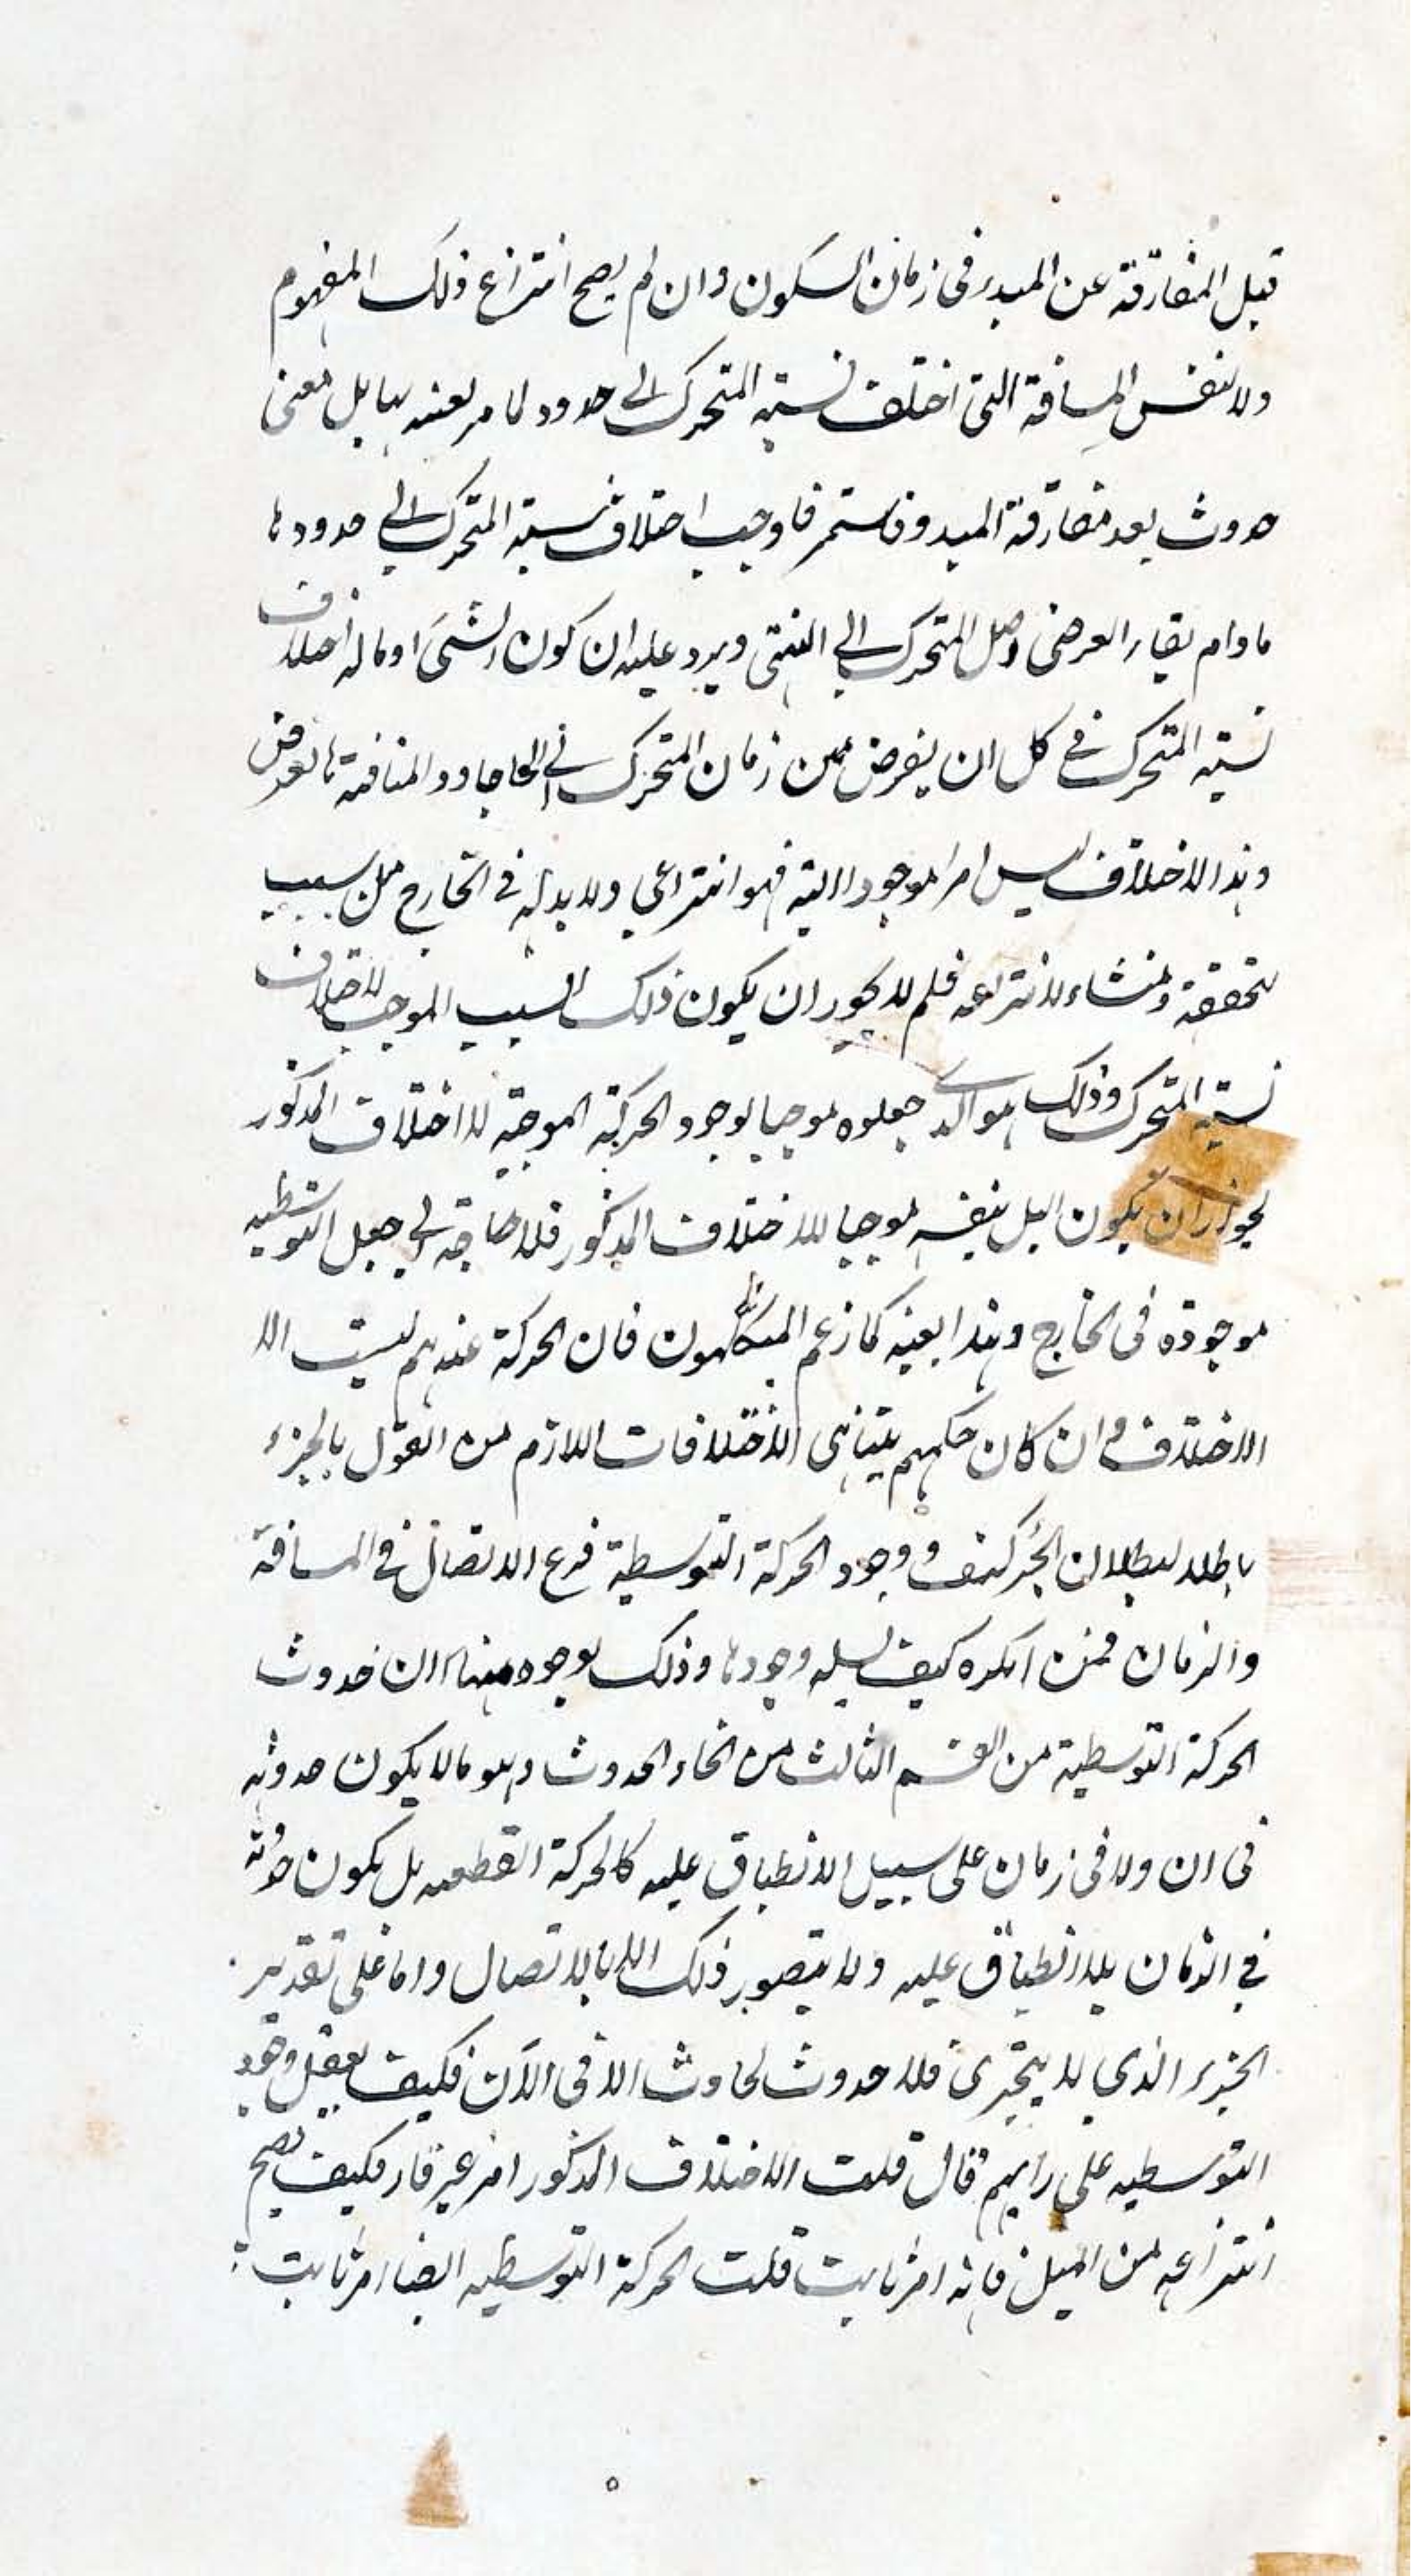 قبل المفارقة عن المبدء في زمان السكون وان لم يصح انتزاع ذلك المفهوم
ولا لنفس المسافة التي اختلف نسبة المتحرك الى حدود لا مر بل معنى
حدوث بعد مفارقة المبدء فاستمر فاوجب اختلاف نسبة المتحرك الى حدودها
مادام بقاء العرضى وصل المتحرك الى المنتهى ويرد عليه ان كون الشئ اوماله اختلاف
نسبة المتحرك في كل ان يفرض من زمان المتحرك في
وهذا الاختلاف ليس امرا موجودا البتة فهو انتزاعي ولا بد له في الخارج من سبب
لتحققه ومنشاء لانتزاعه فلم لا يجوز ان يكون ذلك السبب الموجب لاختلاف
نسبة المتحرك وذلك هو الذي جعلوه موجبا لوجود الحركة الموجبة للاختلاف المذكور
لجواز ان يكون الميل بنفسه موجبا للاختلاف المذكور فلا حاجة الى جعل التوسطيه
موجودة في الخارج وهذا بعينه كما زعم المتكلمون فان الحركة عندهم ليست الا
الاختلاف وان كان حكمهم بتناهى الاختلافات اللازم من القول بالجزء
باطلا لبطلان الجزء كيف ووجود الحركة التوسطية فرع الاتصال في المسافة
والزمان فمن انكره كيف يسلم وجودها وذلك بوجوه منها ان حدوث
الحركة التوسطية من القسم الثالث من انحاء الحدوث وهو مالا يكون حدوثه
في ان ولا في زمان على سبيل الانطباق عليه كالحركة القطعيه بل يكون حدوثه
في الزمان بلا انطباق عليه ولا يتصور ذلك الا بالاتصال واما على تقدير
الجزء الذي لا يتجزى فلا حدوث لحادث الا في الآن فكيف يعقل وجود
التوسطيه على رايهم فان قلت الاختلاف المذكور امر غير قار فكيف يصح
انتزاعه من الميل فانه امر ثابت قلت الحركة التوسطيه ايضا امر ثابت